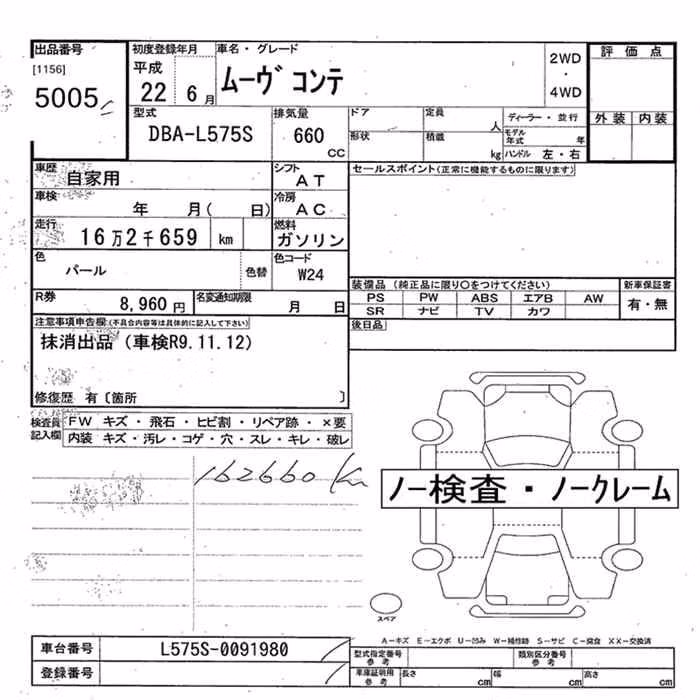 出品番号 初度登録年月 車名・グレード 2WD ・ 4WD 評価点
[1156] 平成
5005 22 6月 ムーヴ コンテ
型式 排気量 ドア 定員 人 ディーラー・並行 外装 内装
DBA-L575S 660 CC 形状 積載 kg モデル年式 年
ハンドル 左・右
車歴 自家用 シフト AT セールスポイント(正常に機能するものに限ります)
車検 年 月( 日) 冷房 AC
走行 16万2千659 km 燃料 ガソリン
色 パール 色替 色コード W24 装備品 (純正品に限り○をつけてください) 新車保証書
PS PW ABS エアB AW 有・無
R券 8,960円 名変通知期限 月 日 SR ナビ TV カワ
注意事項申告欄:(不具合内容等は具体的に記入して下さい) 後日品
抹消出品 (車検R9.11.12)
修復歴 有〔箇所 〕
検査員記入欄 FW キズ・飛石・ヒビ割・リペア跡・×要
内装 キズ・汚レ・コゲ・穴・スレ・キレ・破レ
162660 Km
ノー検査・ノークレーム
スペア
A-キズ E-エクボ U-凹み W-補修跡 S-サビ C-腐食 XX-交換済
車台番号 L575S-0091980 型式指定番号 参考 類別区分番号 参考
登録番号 車庫証明用 参考 長さ cm 幅 cm 高さ cm